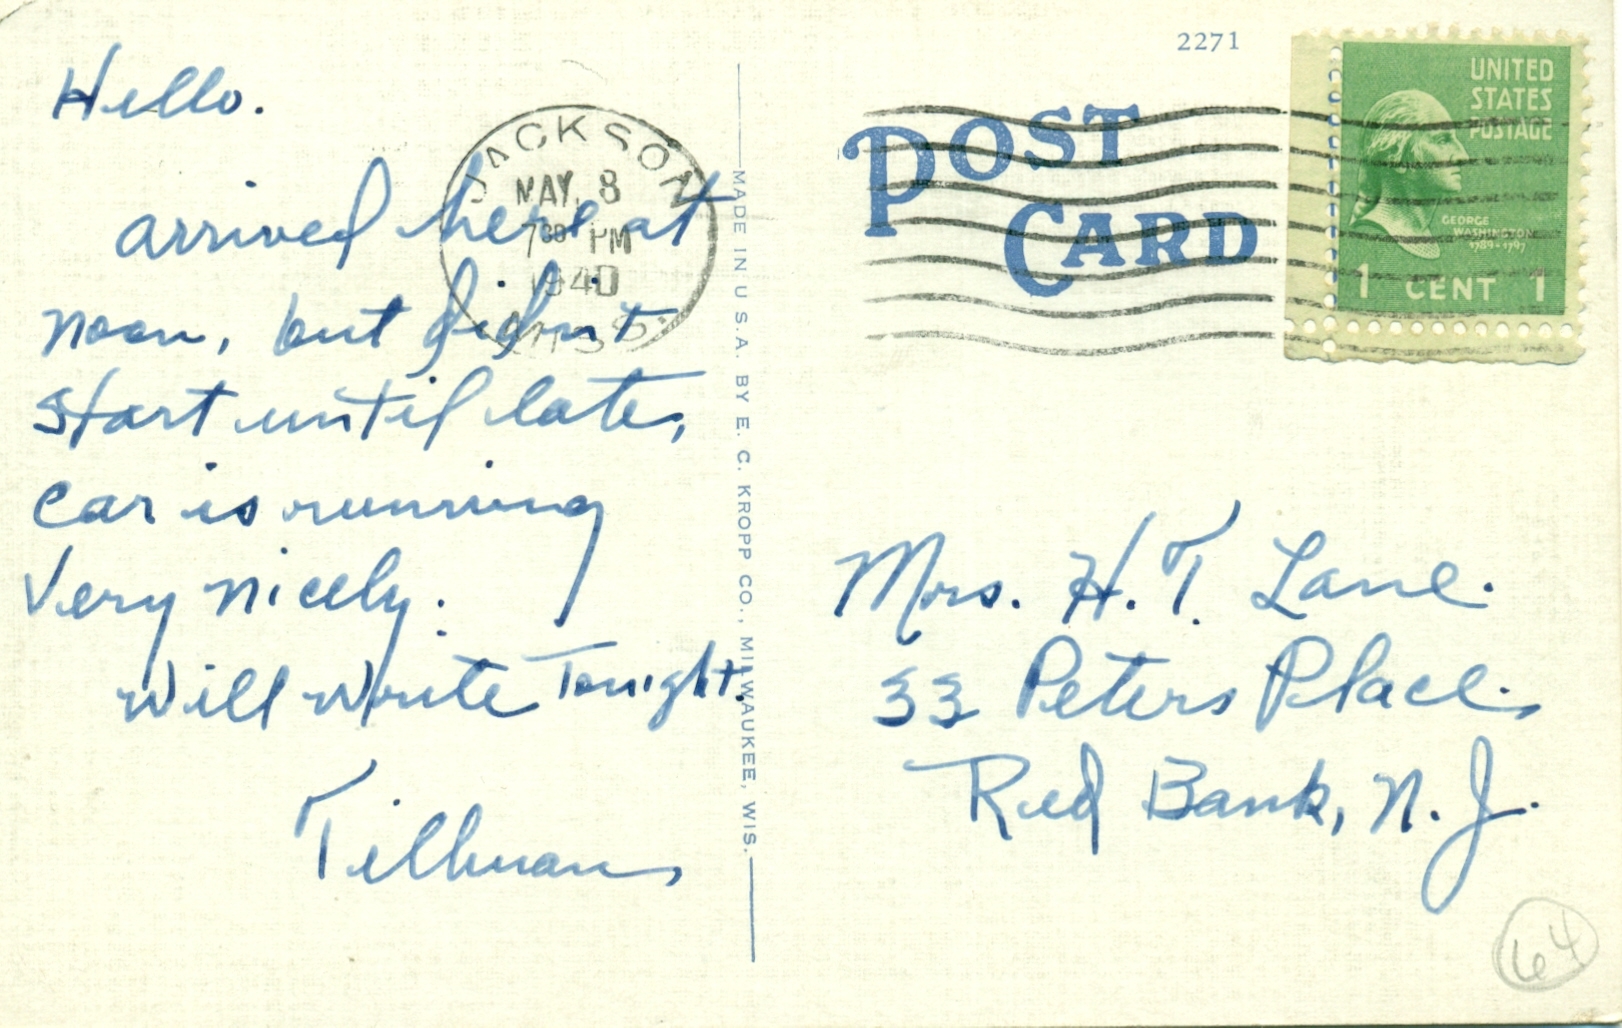 Hello.
arrived here at
noon, but didn't
start until late,
car is running
very nicely.
Will write Tonight.
Tillman,
JACKSON
MAY. 8
7 30 PM
1940
MISS.
MADE IN U.S.A. BY E. C. KROPP CO., MILWAUKEE, WIS.
2271
POST
CARD
UNITED
STATES
POSTAGE
GEORGE
WASHINGTON
1789-1797
1 CENT 1
Mrs. H. T. Lane.
33 Peters Place,
Red Bank, N. J.
64